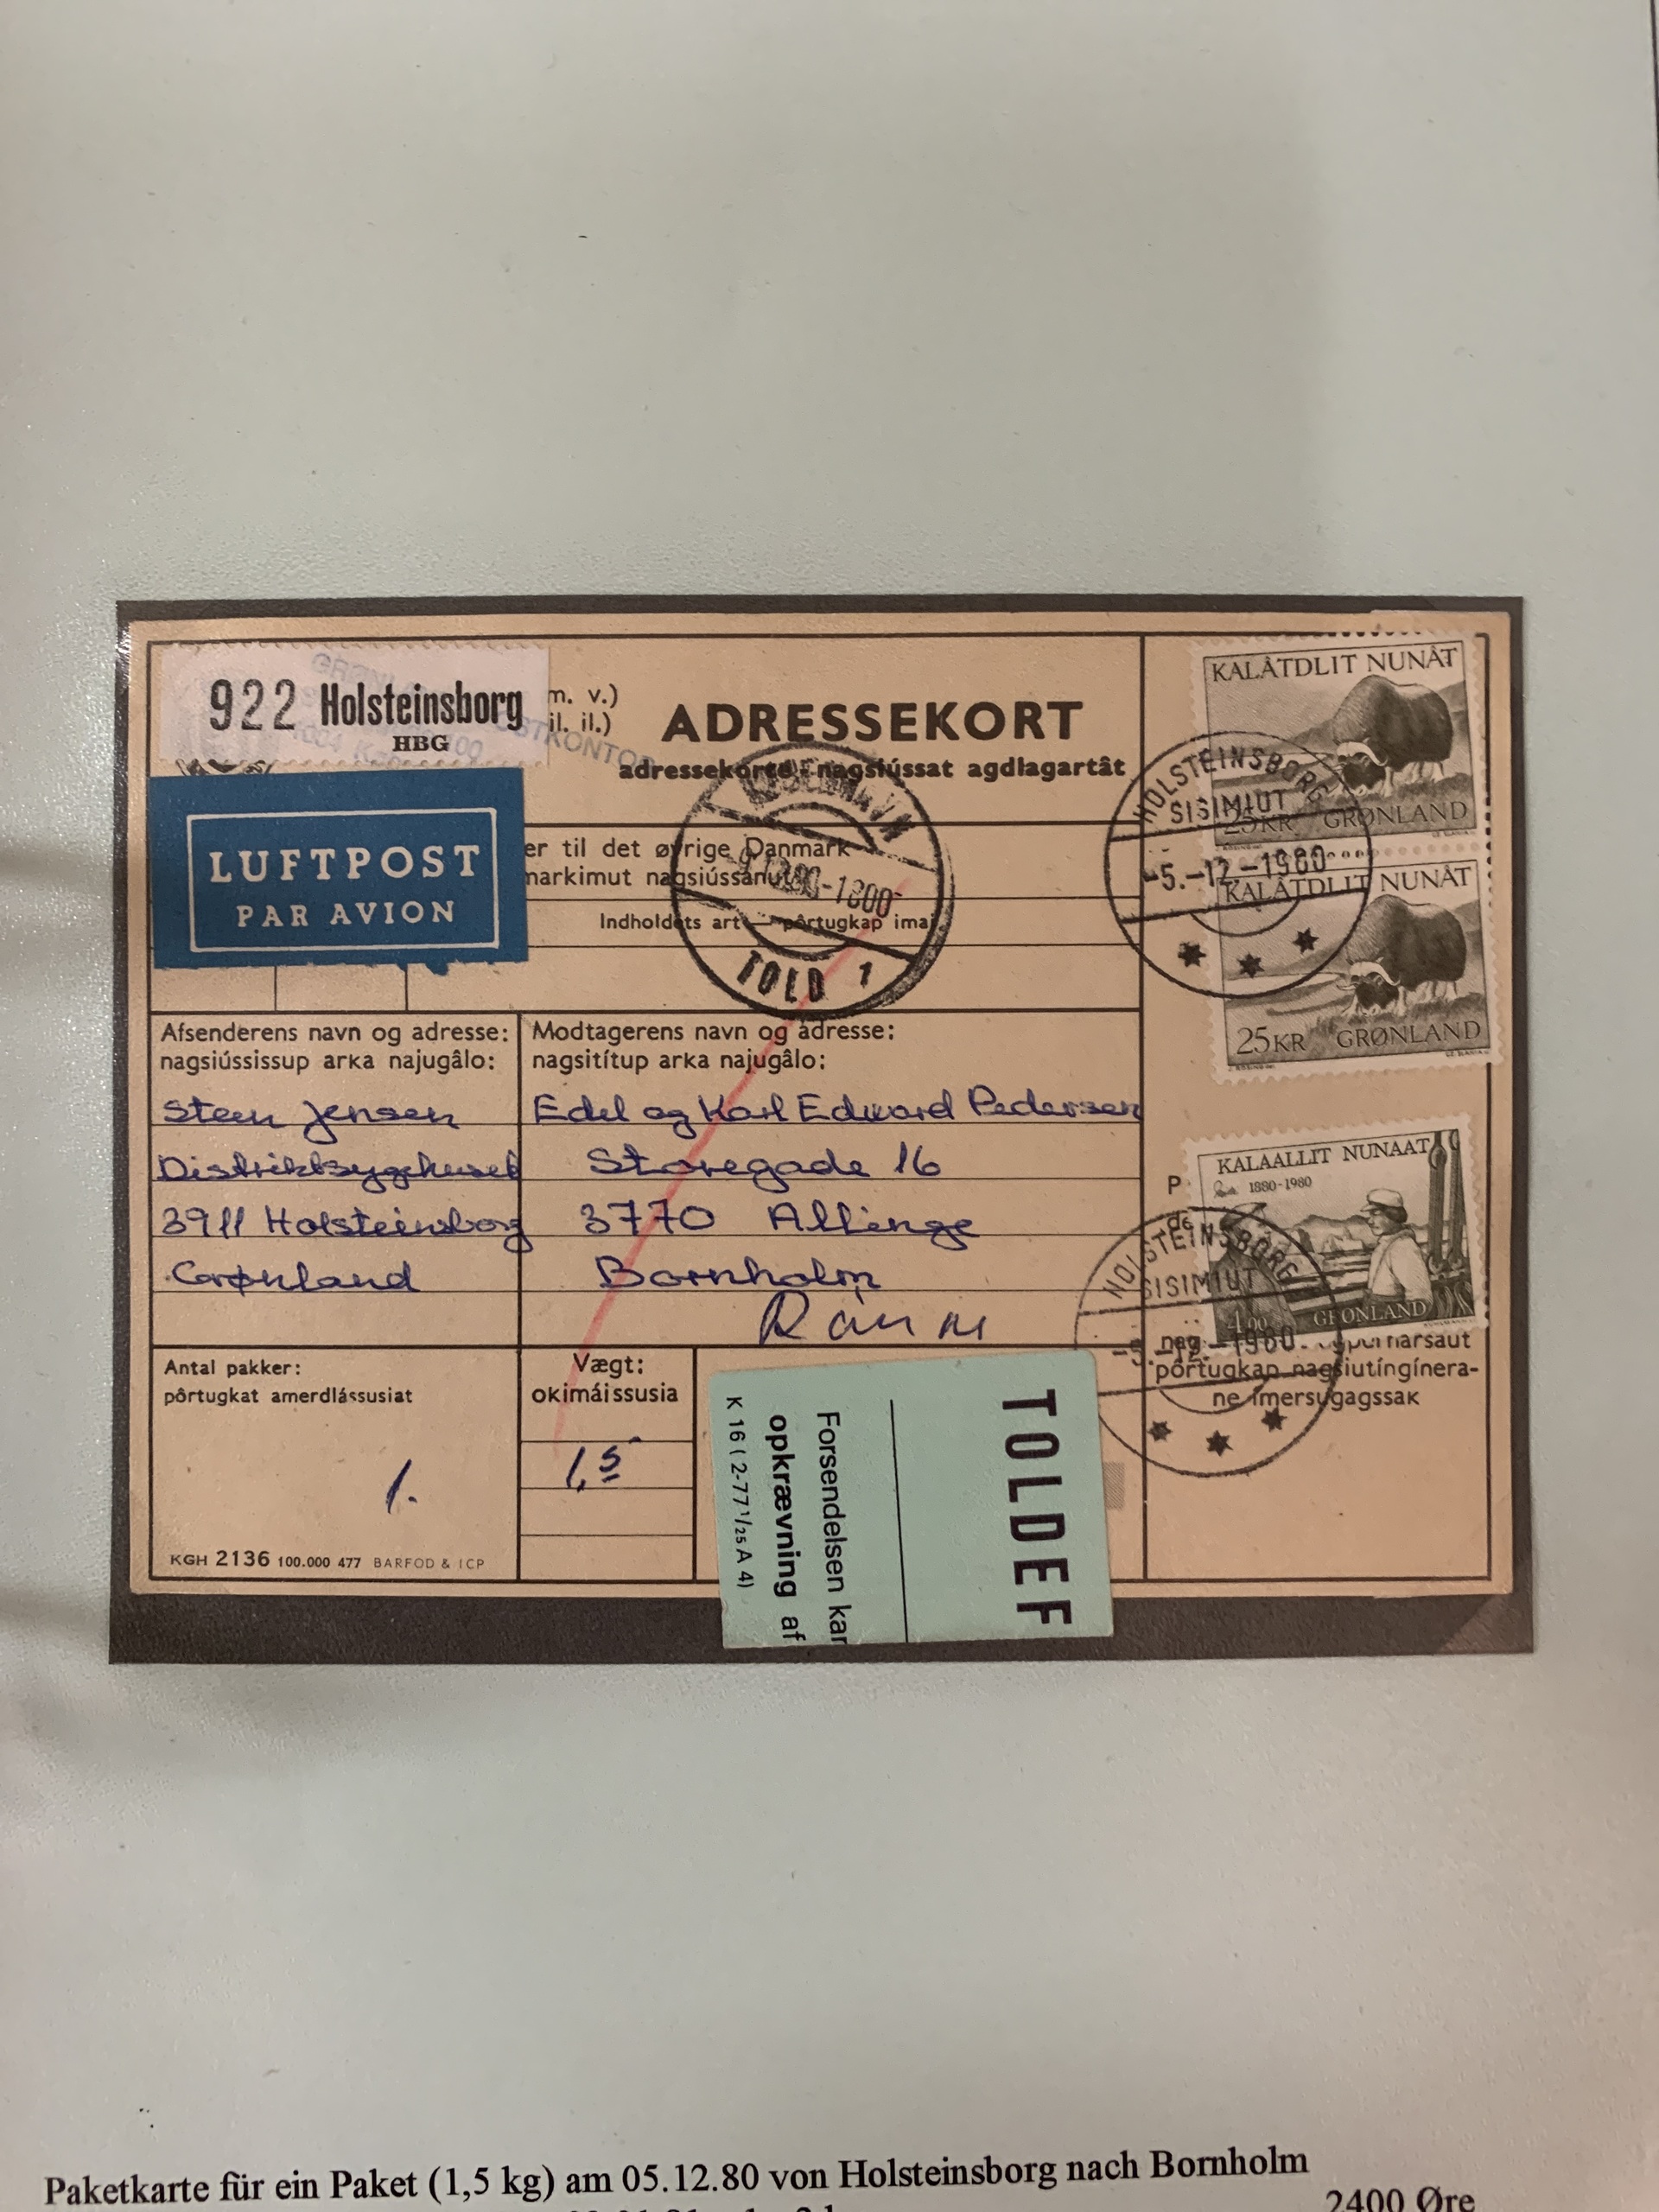 922 Holsteinsborg
HBG
m. v.)
il. il.)
POSTKONTOR
ADRESSEKORT
adressekorte nagsiússat agdlagartât
LUFTPOST
PAR AVION
er til det øvrige Danmark
markimut nagsiússanut
Indholdets art — pôrtugkap imai
KØBENHAVN
-1800
TOLD 1
KALÂTDLIT NUNÂT
25KR GRØNLAND
HOLSTEINSBORG
SISIMIUT
-5.-12.-1980
KALÂTDLIT NUNÂT
25KR GRØNLAND
Afsenderens navn og adresse:
nagsiússissup arĸa najugâlo:
Steen Jensen
Distriktssygehuset
3911 Holsteinsborg
Grønland
Modtagerens navn og adresse:
nagsitítup arĸa najugâlo:
Edel og Karl Edward Pedersen
Storegade 16
3770 Allinge
Bornholm
KALAALLIT NUNAAT
1880-1980
4.00 GRØNLAND
HOLSTEINSBORG
SISIMIUT
-5.-12.-1980
pôrtugkap nagsiutíngínera-
ne ímersugagssaĸ
Antal pakker:
pôrtugkat amerdlássusiat
1.
Vægt:
okimáissusia
1,5
KGH 2136 100.000 477 BARFOD & ICP
TOLDEF
Forsendelsen kan
opkrævning af
K 16 ( 2-77 1/25 A 4)
Paketkarte für ein Paket (1,5 kg) am 05.12.80 von Holsteinsborg nach Bornholm
2400 Øre